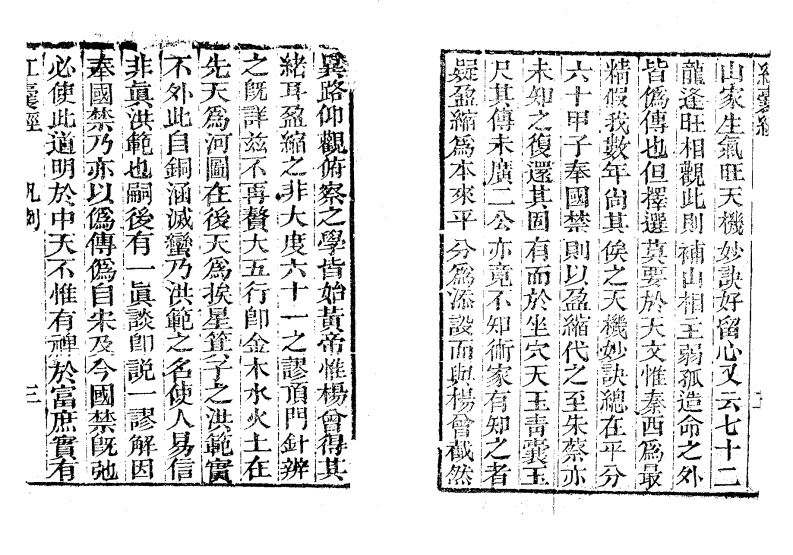 山家生氣旺天機妙訣好留心又云七十二
龍逢旺相觀此則補山相王弱孤造命之外
皆僞傳也但擇選莫要於天文惟泰西爲最
精假我數年尚其俟之天機妙訣總在平分
六十甲子奉國禁則以盈縮代之至朱蔡亦
未知之復還其固有而於坐穴天玉靑囊玉
尺其傳未廣二公亦竟不知術家有知之者
疑盈縮爲本來平分爲添設而與楊曾截然
異路仰觀俯察之學皆始黃帝惟楊曾得其
緒耳盈縮之非大度六十一之謬頂門針辨
之旣詳茲不再贅大五行卽金木水火土在
先天爲河圖在後天爲挨星箕子之洪範實
不外此自銅涵滅蠻乃洪範之名使人易信
非眞洪範也嗣後有一眞談卽説一謬解因
奉國禁乃亦以僞傳僞自宋及今國禁旣弛
必使此道明於中天不惟有裨於富庶實有
囊經 凡例 三